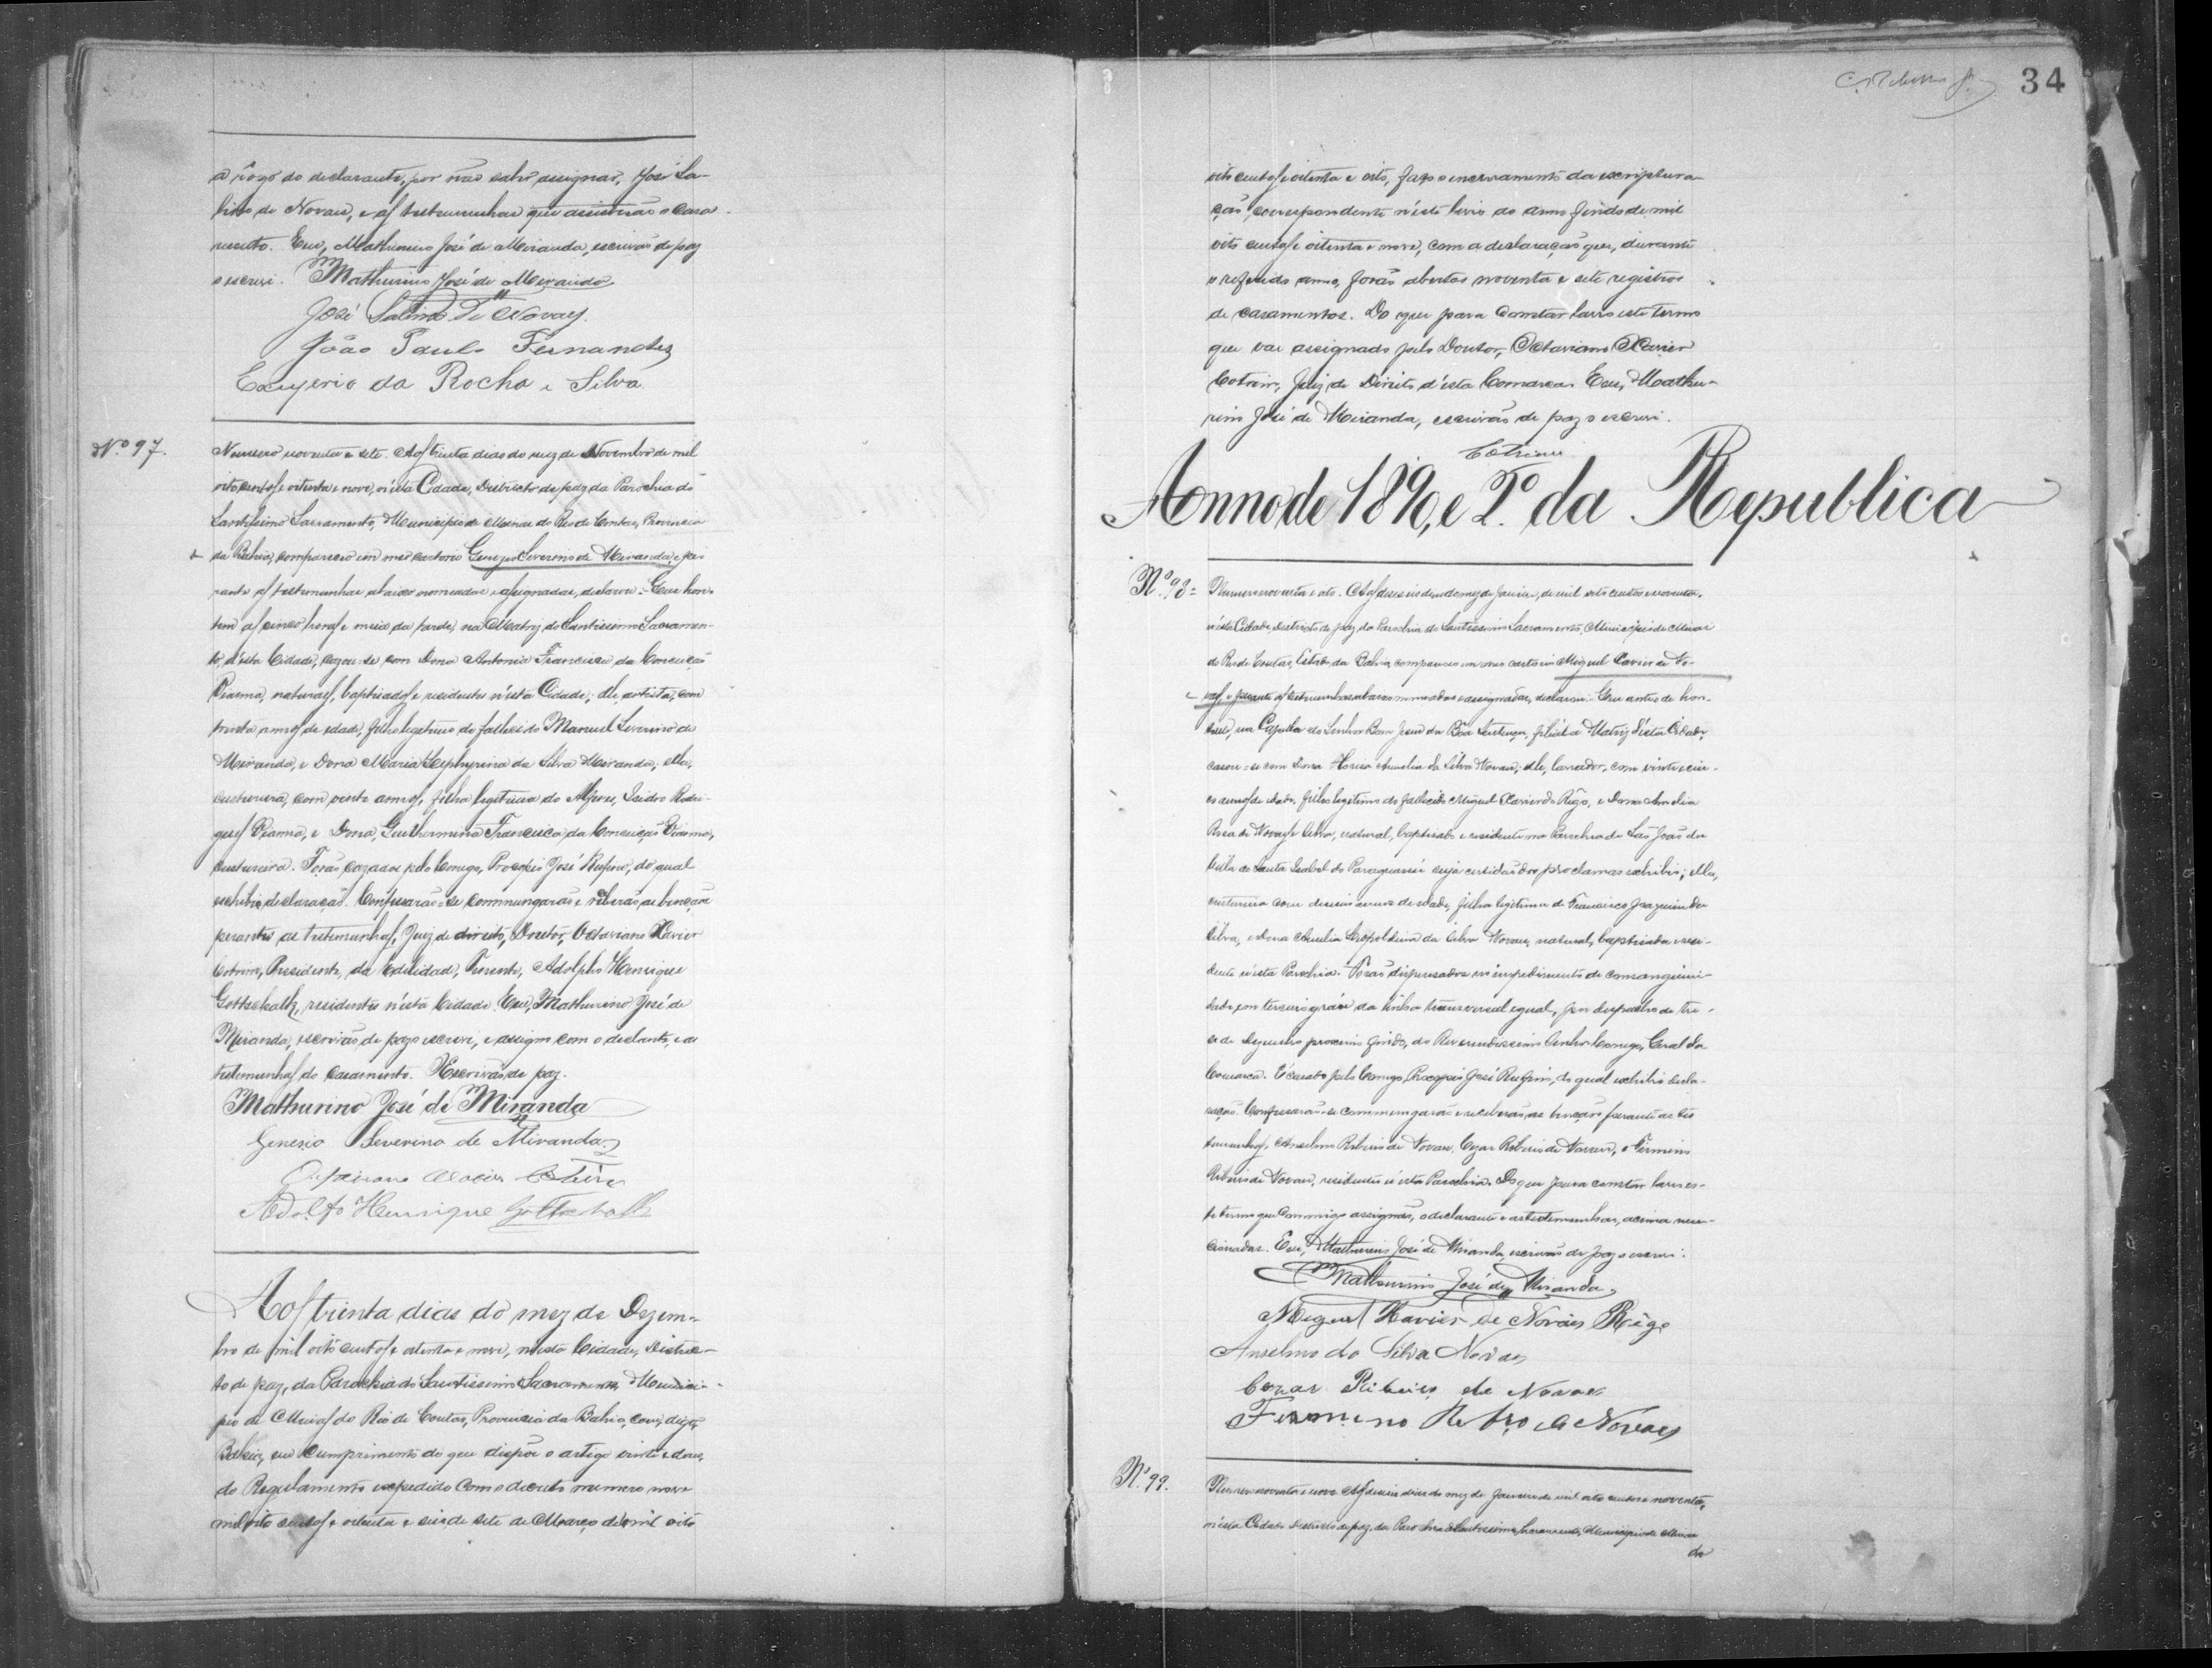 a rôgo do declarante, por não saber assignar, José Sa-
lino de Novaes, e as testemunhas que assistirão o casa-
mento. Eu, Mathurino José de Miranda, escrivão de paz
o escrevi. Mathurino José de Miranda
José Salino de Novaes.
João Paulo Fernandes
Exuperio da Rocha e Silva
Nº 97.
Numero noventa e sete. Aos trinta dias do mez de Novembro de mil
oito centos e oitenta e nove, n'esta Cidade, Districto de paz da Parochia do
Santissimo Sacramento, Municipio de Minas do Rio de Contas, Provincia
da Bahia, compareceo em meu cartorio Genezio Severino de Miranda, e pe-
rante as testemunhas abaixo nomeadas e assignadas, declarou: Que hon-
tem as cinco horas e meia da tarde, na Matriz do Santissimo Sacramen-
to, d'esta Cidade, cazou-se com Dona Antonia Francisca da Conceição
Vianna, naturaes, baptisados e residentes n'esta Cidade; elle, artista, com
trinta annos de edade, filho legitimo do fallecido Manuel Severino de
Miranda, e Dona Maria Zephyrina da Silva Miranda; ella,
custureira, com vinte annos, filha legitima do Alferes, Isidro Rodri-
gues Vianna, e Dona, Guilhermina Francisca da Conceição Vianna,
custureira. Forão cazados pelo Conego, Procopio José Rufino, do qual
exhibio declaração. Confessarão-se commungarão e receberão as bençãos
perante as testemunhas, Juiz de direito, Doutor, Octaviano Xavier
Cotrim, Presidente da Edilidade, Tenente, Adolpho Henrique
Gottschalk, residentes n'esta Cidade. Eu, Mathurino José de
Miranda, escrivão de paz o escrevi, e assigno com o declante, e as
testemunhas do casamento. O Escrivão de paz.
Mathurino José de Miranda
Genesio Severino de Miranda
Octaviano Xavier Cotrim
Adolfo Henrique Gottschalk
Aos trinta dias do mez de Dezem-
bro de mil oito centos e oitenta e nove, nesta Cidade, Distric-
to de paz, da Parochia do Santissimo Sacramento, Munici-
pio de Minas do Rio de Contas, Provincia da Bahia, digo,
Bahia, em cumprimento do que dispõe o artigo vinte e dous,
do Regulamento expedido com o decreto numero nove
mil oito centos e oitenta e seis de sete de Março de mil oito
34
oito centos e oitenta e oito, faço o encerramento da escriptura-
ção, correspondente n'este livro do anno findo de mil
oito centos e oitenta e nove, com a declaração que, durante
o referido anno, forão abertos noventa e sete registros
de casamentos. Do que para constar lavro este termo
que vae assignado pelo Doutor, Octaviano Xavier
Cotrim, Juiz de Direito d'esta Comarca. Eu, Mathu-
rino José de Miranda, escrivão de paz o escrevi.
Cotrim
Anno de 1890, e 2º da Republica
Nº 98=
Numero noventa e oito. Aos dias do mez de Janeiro, de mil oito centos e noventa,
n'esta Cidade, Districto de paz da Parochia do Santissimo Sacramento, Municipio de Minas
do Rio de Contas, Estado da Bahia, compareceo em meu cartorio Miguel Xavier de No-
vaes, e perante as testemunhas abaixo nomeadas e assignadas, declarou: Que antes de hon-
tem, na Capella do Senhor Bom Jesus da Boa Sentença, filial a Matriz d'esta Cidade,
casou-se com Dona Amelia da Silva Novaes; elle, lavrador, com vinte e cin-
co annos de edade, filho legitimo do fallecido Miguel Xavier do Rêgo, e Dona Amelia
Rosa de Novaes e Silva, natural, baptisado e residente na Parochia de São João da
Villa de Santa Isabel do Paraguassú cuja certidão dos proclamas exhibio; ella,
custureira com annos de edade, filha legitima de Francisco Joaquim da
Silva, e Dona Amelia Leopoldina da Silva Novaes, natural, baptisada e resi-
dente n'esta Parochia. Forão dispensados no impedimento de consanguini-
dade, em terceiro gráo da linha transversal egual, por despacho de tre-
se de Dezembro proximo findo, do Reverendissimo Senhor Conego, Geral da
Comarca. E casado pelo Conego, Procopio José Rufino, do qual exhibio decla-
ração. Confessarão-se commungarão e receberão as bençãos perante as tes-
temunhas, Anselmo Ribeiro de Novaes, Cezar Ribeiro de Novaes, e Firmino
Ribeiro de Novaes, residentes n'esta Parochia. Do que para constar lavro es-
te termo que commigo assignão, o declarante e as testemunhas, acima men-
cionadas. Eu, Mathurino José de Miranda, escrivão de paz o escrevi.
Mathurino José de Miranda
Miguel Xavier de Novais Rêgo
Anselmo da Silva Novaes
Cezar Ribeiro de Novaes
Firmino Ribro de Novaes
Nº 99.
Numero noventa e nove. Aos dias do mez de Janeiro de mil oito centos e noventa,
n'esta Cidade Districto de paz, da Parochia do Santissimo Sacramento, Municipio de Minas
do